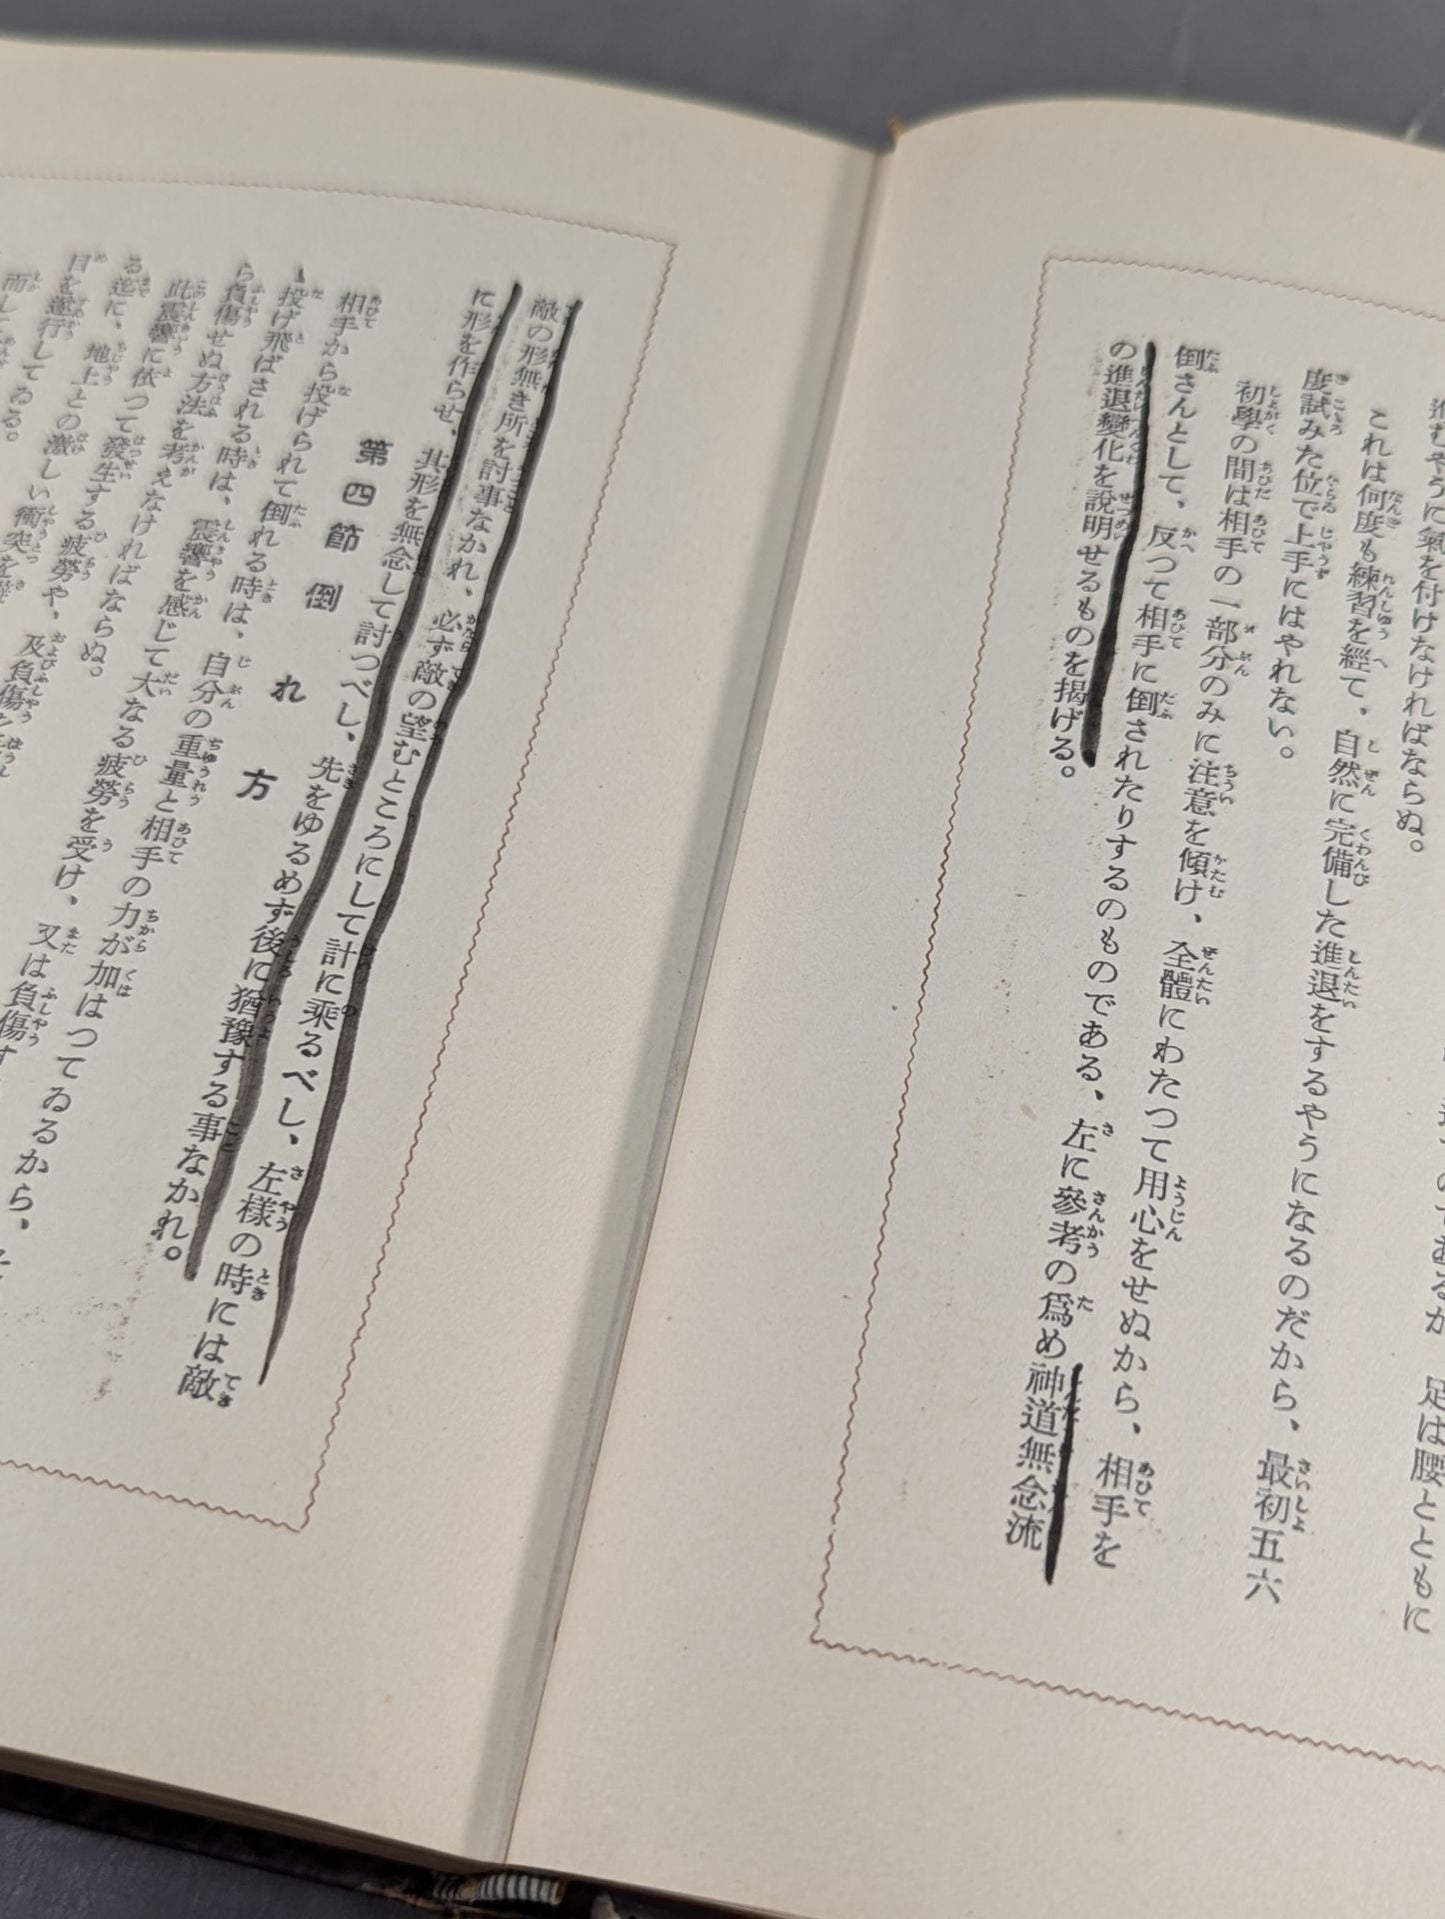 進むやうに氣を付けなければならぬ。
足は腰とともに
これは何度も練習を經て、自然に完備した進退をするやうになるのだから、最初五六
度試みた位で上手にはやれない。
初學の間は相手の一部分のみに注意を傾け、全體にわたつて用心をせぬから、相手を
倒さんとして、反つて相手に倒されたりするのものである、左に參考の爲め神道無念流
の進退變化を說明せるものを揭げる。
敵の形無き所を討事なかれ、必ず敵の望むところにして計に乘るべし、左樣の時には敵
に形を作らせ、其形を無念して討つべし、先をゆるめず後に猶豫する事なかれ。
第四節 倒れ方
相手から投げられて倒れる時は、自分の重量と相手の力が加はつてゐるから、
投げ飛ばされる時は、震響を感じて大なる疲勞を受け、又は負傷す
ら負傷せぬ方法を考えなければならぬ。
此震響に依つて發生する疲勞や、及負傷
る迄に、地上との激しい衝突を
目を遂行してゐる。
而して